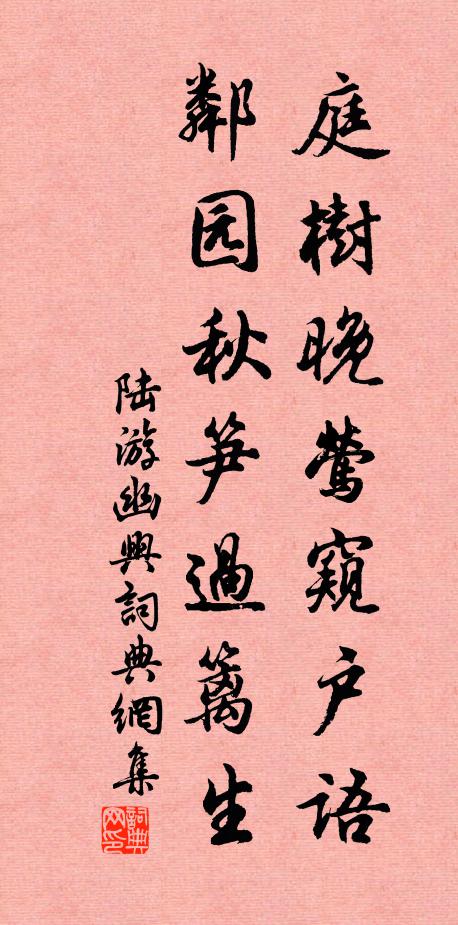 庭樹晚鶯窺户语
鄰园秋笋過籬生
陆游幽興詞典網集
詞典网印